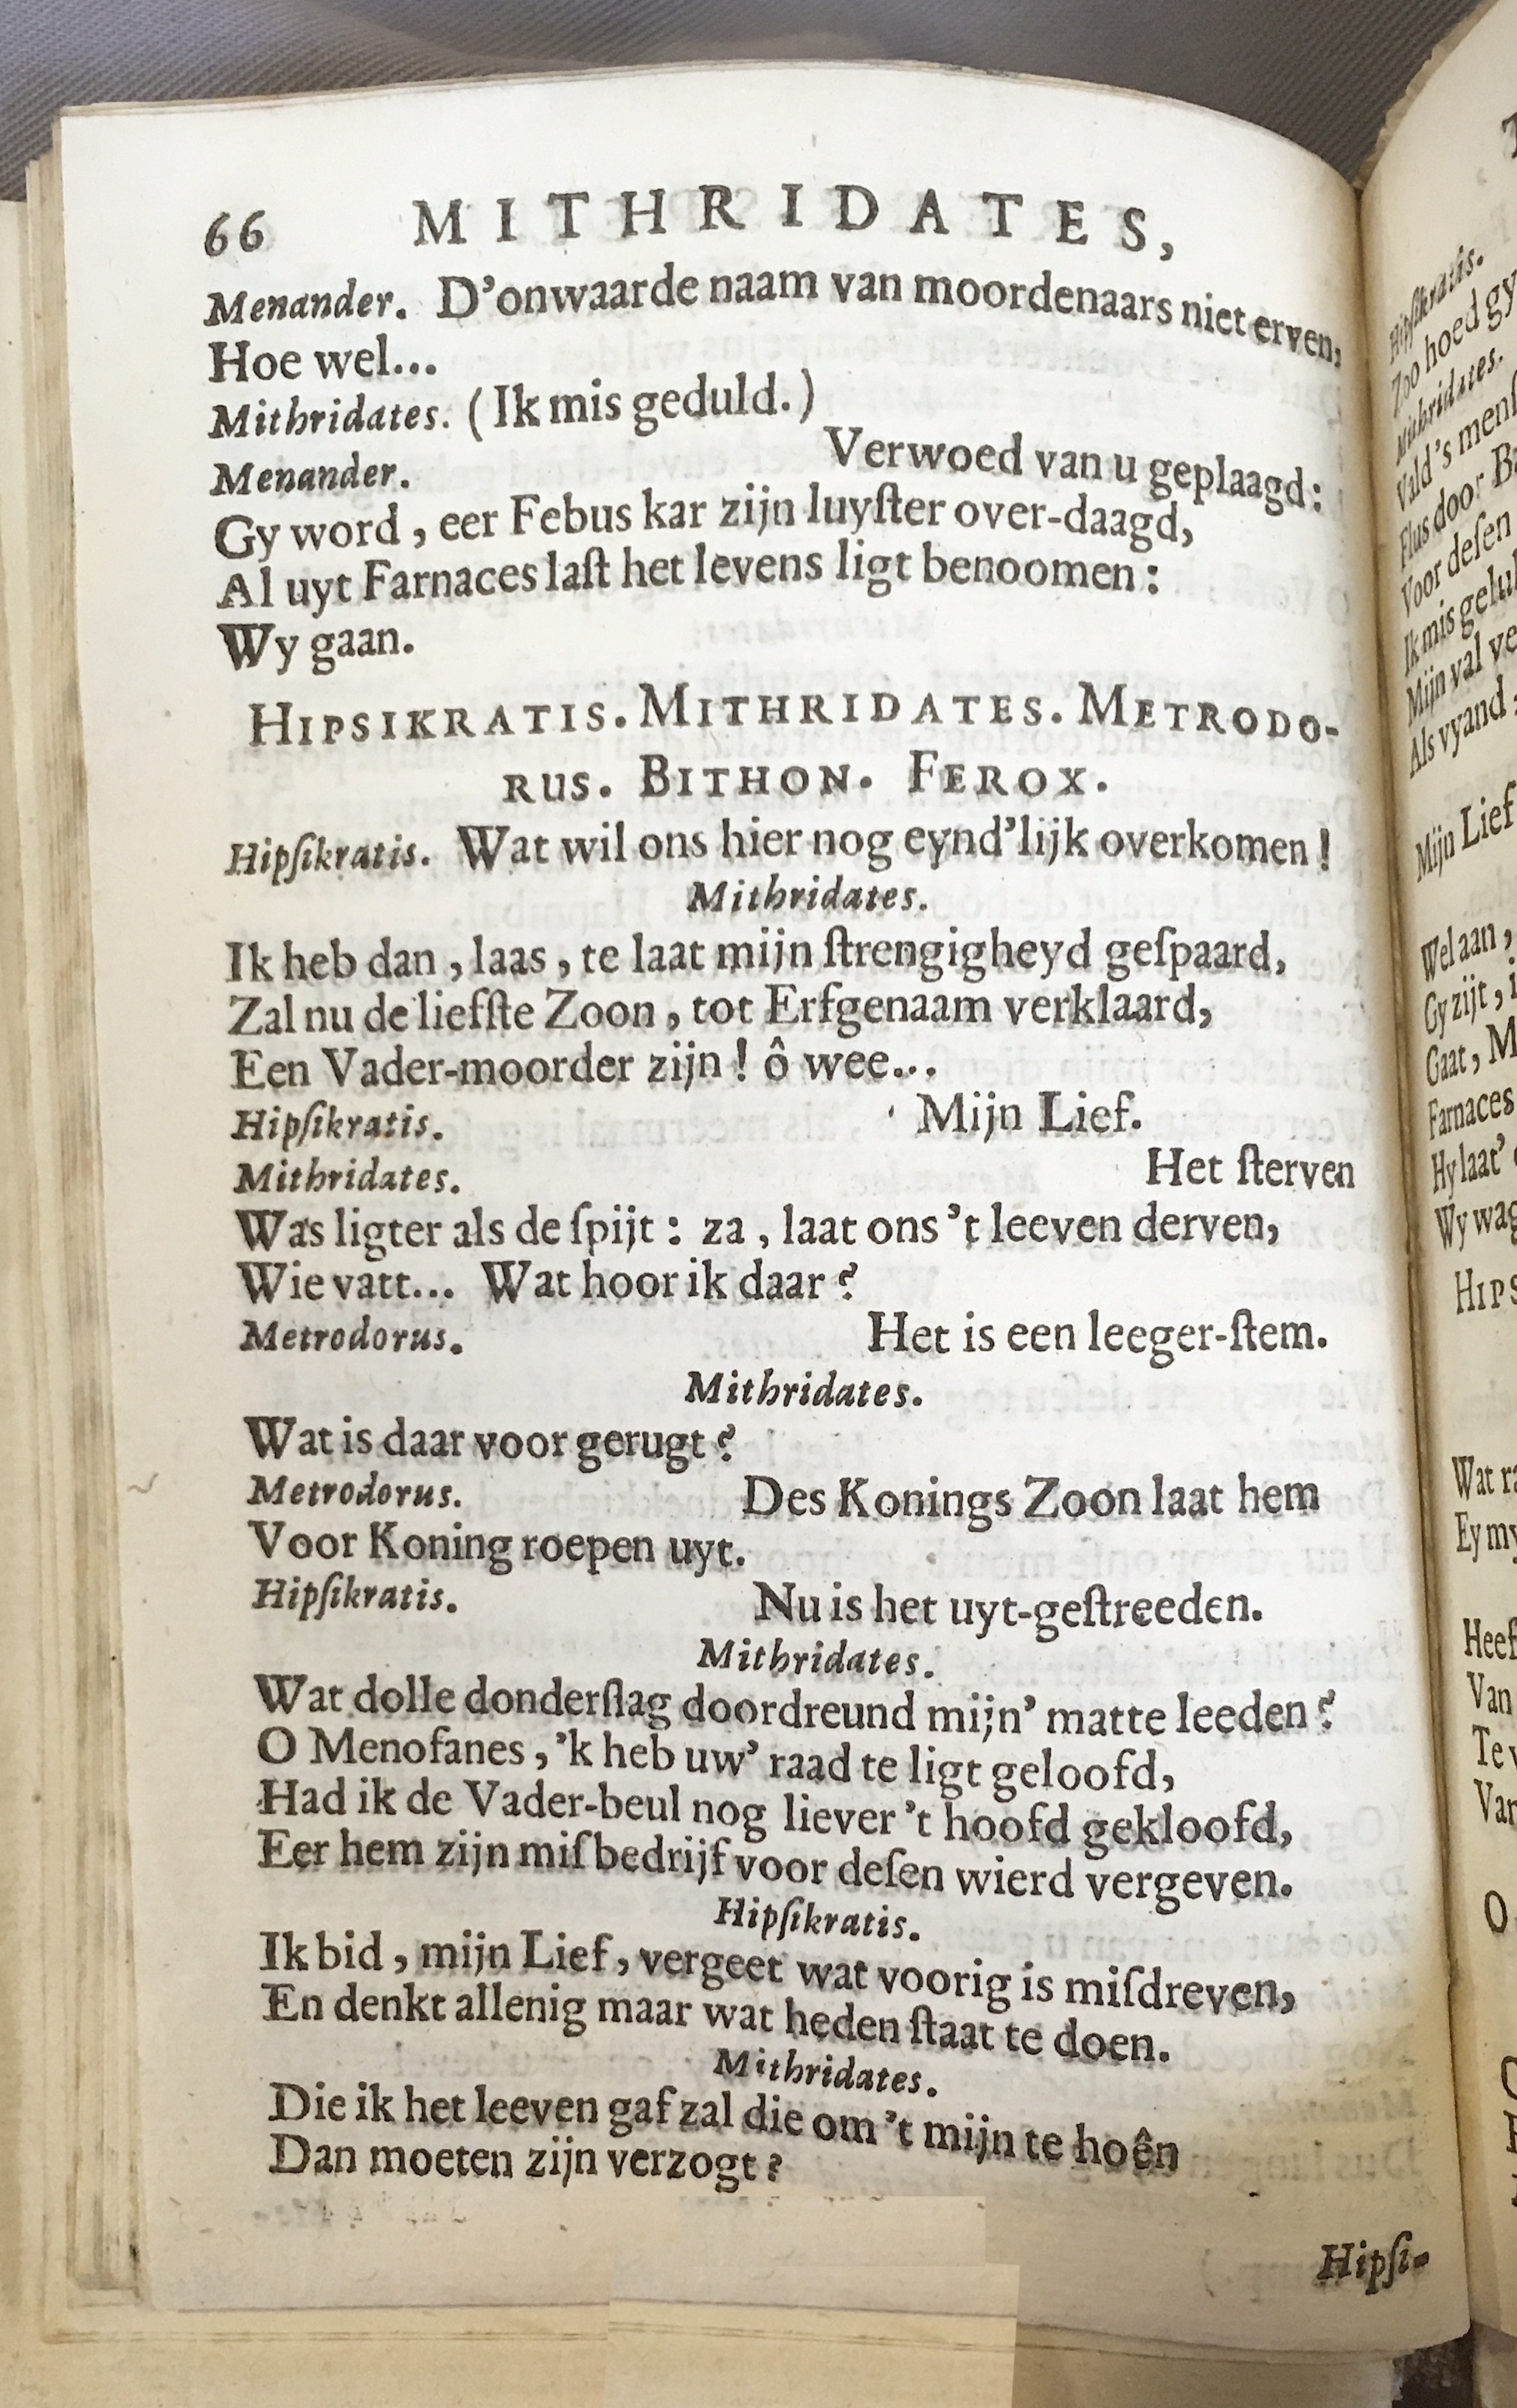 66 MITHRIDATES,
Menander. D'onwaarde naam van moordenaars niet erven,
Hoe wel...
Mithridates. (Ik mis geduld.)
Menander. Verwoed van u geplaagd:
Gy word, eer Febus kar zijn luyſter over-daagd,
Al uyt Farnaces laſt het levens ligt benoomen:
Wy gaan.
HIPSIKRATIS. MITHRIDATES. METRODO-
RUS. BITHON. FEROX.
Hipſikratis. Wat wil ons hier nog eynd'lijk overkomen!
Mithridates.
Ik heb dan, laas, te laat mijn ſtrengigheyd geſpaard,
Zal nu de liefſte Zoon, tot Erfgenaam verklaard,
Een Vader-moorder zijn! ô wee...
Hipſikratis. Mijn Lief.
Mithridates. Het ſterven
Was ligter als de ſpijt: za, laat ons 't leeven derven,
Wie vatt... Wat hoor ik daar?
Metrodorus. Het is een leeger-ſtem.
Mithridates.
Wat is daar voor gerugt?
Metrodorus. Des Konings Zoon laat hem
Voor Koning roepen uyt.
Hipſikratis. Nu is het uyt-geſtreeden.
Mithridates.
Wat dolle donderſlag doordreund mijn' matte leeden?
O Menofanes, 'k heb uw' raad te ligt geloofd,
Had ik de Vader-beul nog liever 't hoofd gekloofd,
Eer hem zijn miſbedrijf voor deſen wierd vergeven.
Hipſikratis.
Ik bid, mijn Lief, vergeet wat voorig is miſdreven,
En denkt allenig maar wat heden ſtaat te doen.
Mithridates.
Die ik het leeven gaf zal die om 't mijn te hoên
Dan moeten zijn verzogt?
Hipſi-
Hipſikratis.
Zoo hoed gy
Mithridates.
Vald's menſ
Flus door Ba
Voor deſen
Ik mis geluk
Mijn val ve
Als vyand
Mijn Lief
Wel aan,
Gy zijt,
Gaat, M
Farnaces
Hy laat'
Wy wag
HIPS
Wat ra
Ey my
Heef
Van
Te v
Van
O